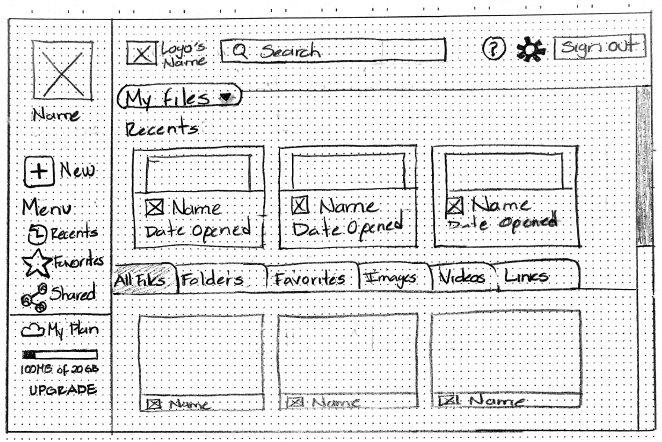 Name
+ New
Menu
Recents
Favorites
Shared
My Plan
100MB of 20GB
UPGRADE
Logo's
Name
Search
?
Sign out
My files
Recents
Name
Date Opened
Name
Date Opened
Name
Date Opened
All Files
Folders
Favorites
Images
Videos
Links
Name
Name
Name